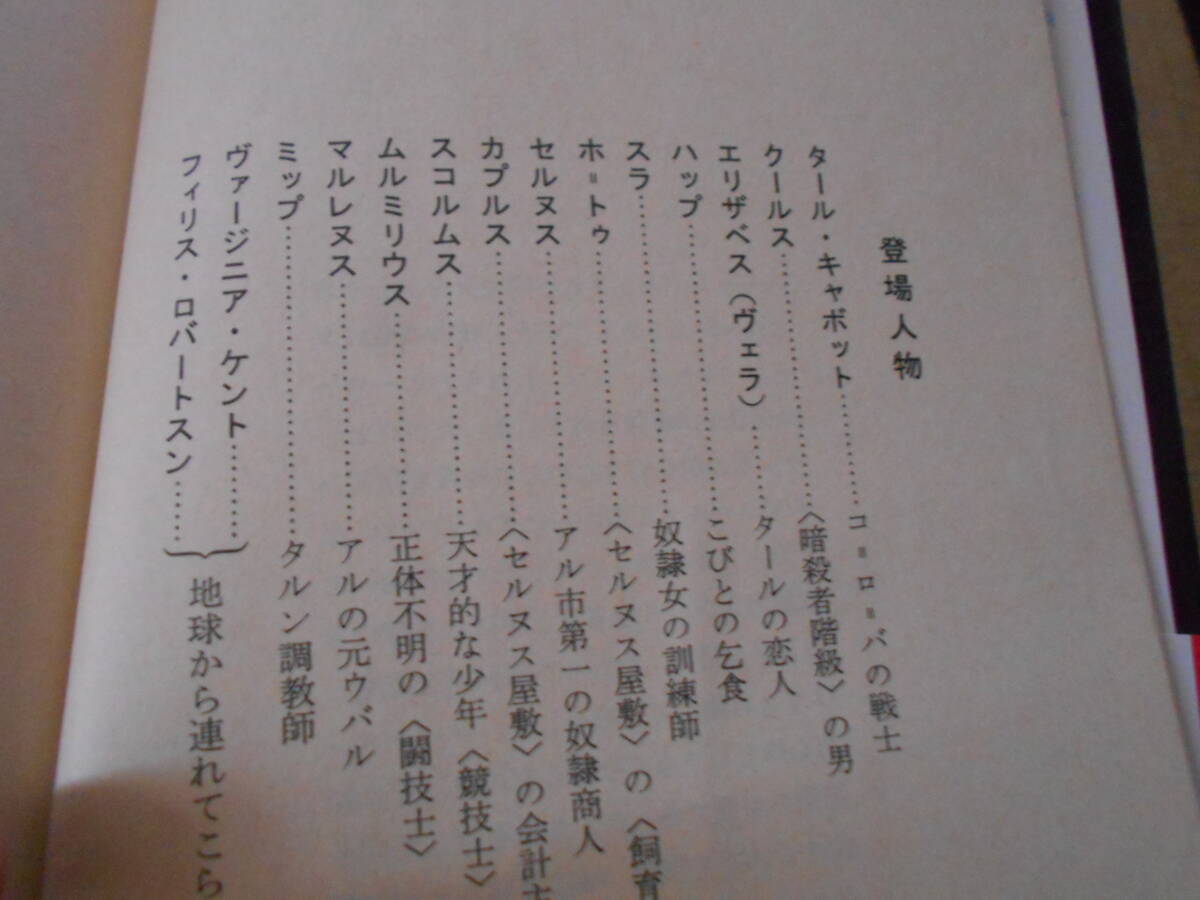 登場人物
タール・キャボット…………コ゠ロ゠バの戦士
クールス…………〈暗殺者階級〉の男
エリザベス（ヴェラ）……タールの恋人
ハップ…………こびとの乞食
スラ…………奴隷女の訓練師
ホ゠トゥ…………〈セルヌス屋敷〉の〈飼育
セルヌス…………アル市第一の奴隷商人
カプルス…………〈セルヌス屋敷〉の会計士
スコルムス…………天才的な少年〈競技士〉
ムルミリウス…………正体不明の〈闘技士〉
マルレヌス…………アルの元ウバル
ミップ…………タルン調教師
ヴァージニア・ケント………
フィリス・ロバートスン……
地球から連れてこら